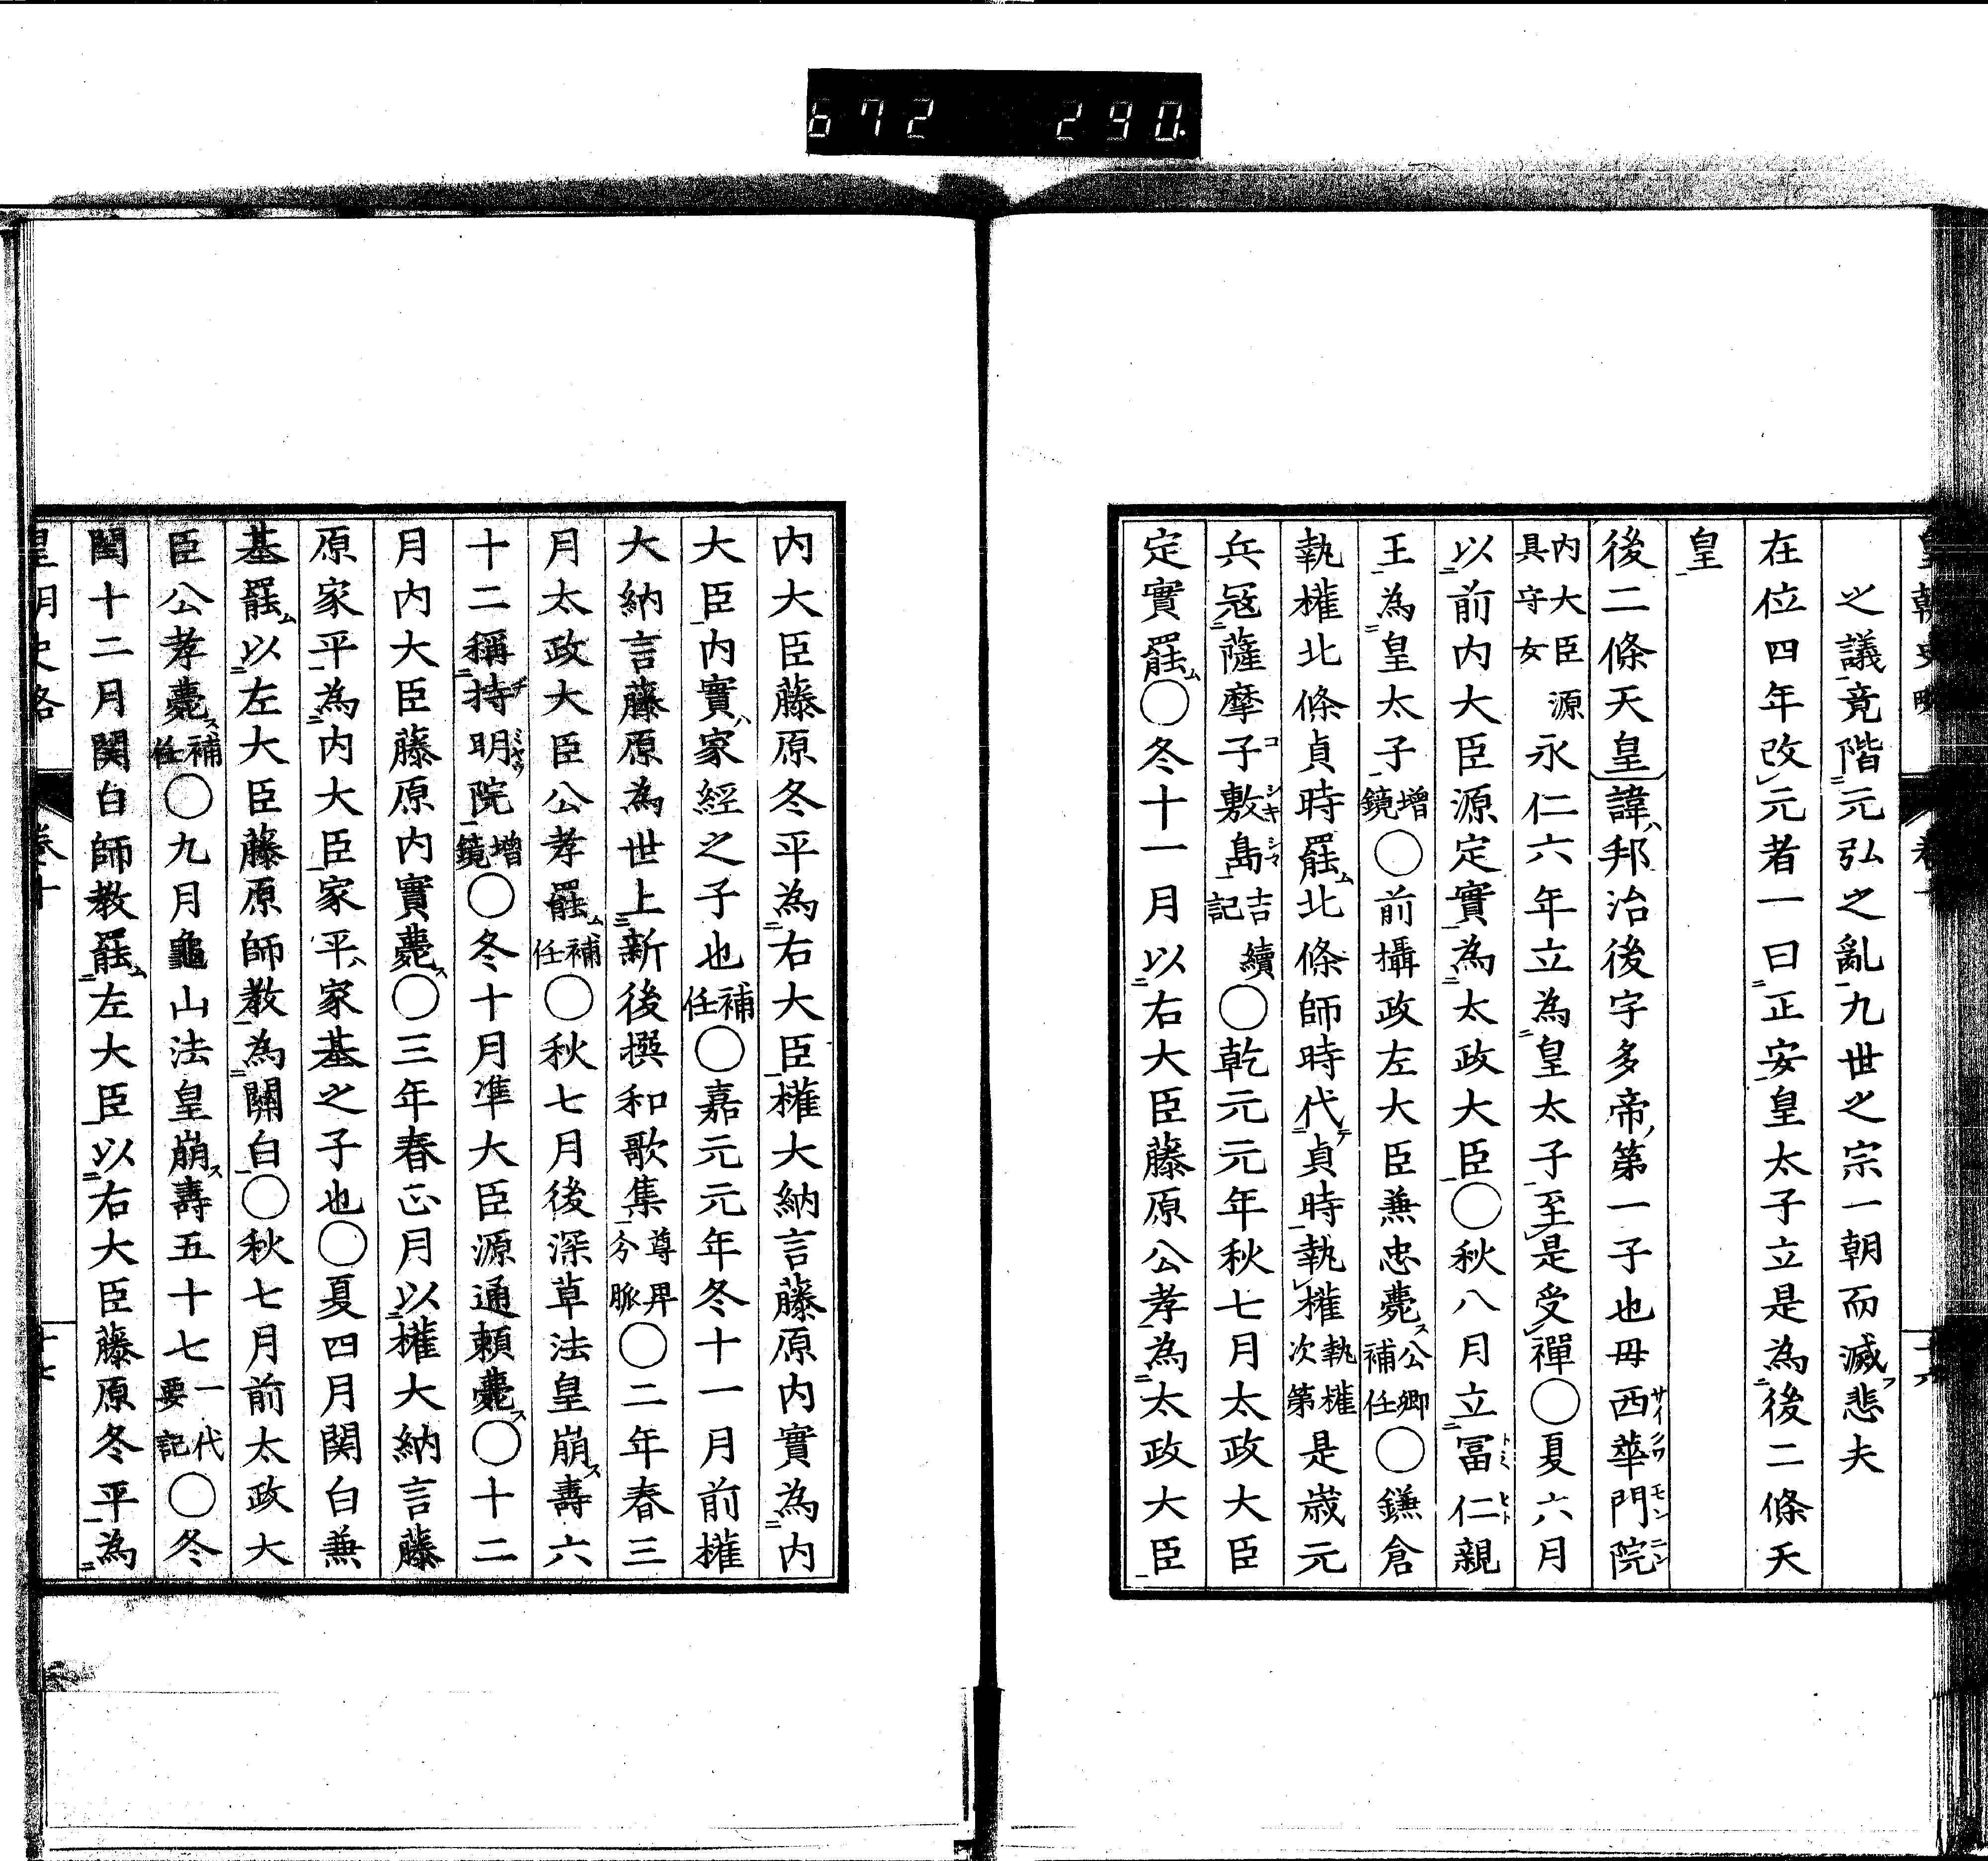 672 290
之議竟階元弘之亂九世之宗一朝而滅悲夫
在位四年改元者一曰正安皇太子立是為後二條天
皇
後二條天皇諱邦治後宇多帝第一子也母西華門院
内大臣具守女源永仁六年立為皇太子至是受禪○夏六月
以前内大臣源定實為太政大臣○秋八月立冨仁親
王為皇太子增鏡○前攝政左大臣兼忠薨公卿補任○鎌倉
執權北條貞時罷北條師時代貞時執權執權次第是歲元
兵寇薩摩子敷島吉續記○乾元元年秋七月太政大臣
定實罷○冬十一月以右大臣藤原公孝為太政大臣
内大臣藤原冬平為右大臣權大納言藤原内實為内
大臣内實家經之子也補任○嘉元元年冬十一月前權
大納言藤原為世上新後撰和歌集尊卑分脈○二年春三
月太政大臣公孝罷補任○秋七月後深草法皇崩壽六
十二稱持明院增鏡○冬十月準大臣源通賴薨○十二
月内大臣藤原内實薨○三年春正月以權大納言藤
原家平為内大臣家平家基之子也○夏四月関白兼
基罷以左大臣藤原師教為關白○秋七月前太政大
臣公孝薨補任○九月龜山法皇崩壽五十七一代要記○冬
閏十二月関白師教罷左大臣以右大臣藤原冬平為